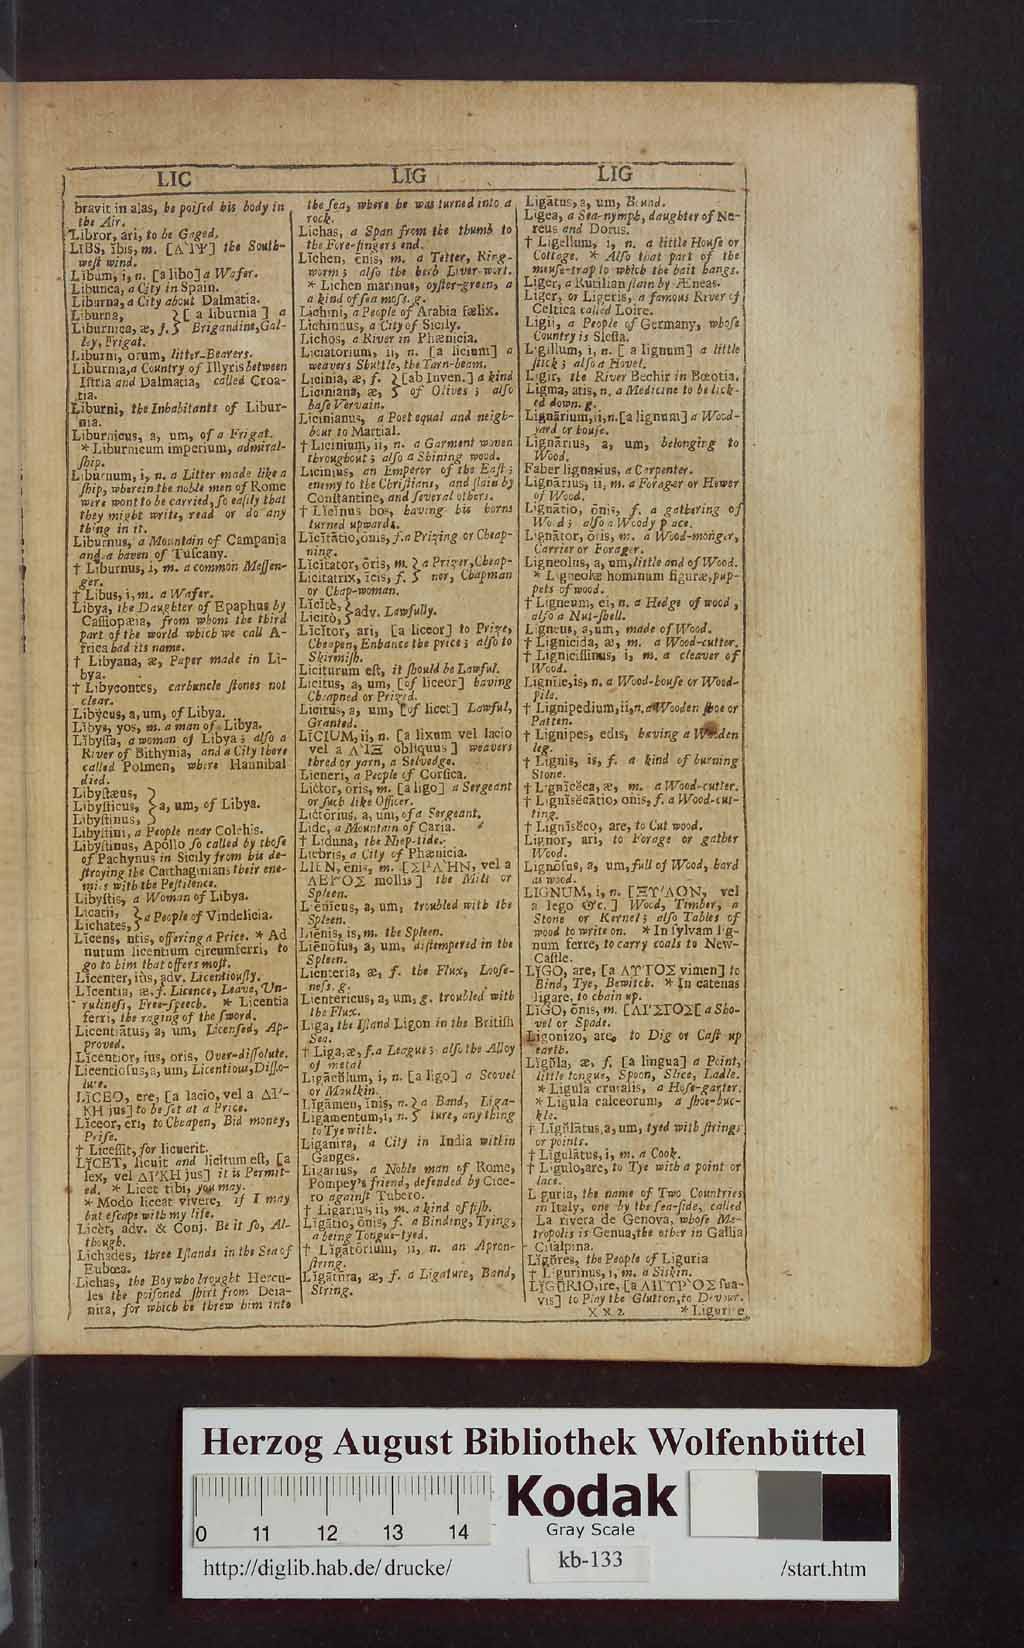 LIC LIG LIG
bravit in alas, he poiſed his body in
the Air.
Libror, ari, to be Gaged.
LIBS, ibis, m. [ΛΙΨ] the South-
weſt wind.
Libum, i, n. [a libo] a Wafer.
Libunca, a City in Spain.
Liburna, a City about Dalmatia.
Liburna, }[ a liburnia ] a
Liburnica, æ, f. } Brigandine, Gal-
ley, Frigat.
Liburni, orum, litter-Bearers.
Liburnia, a Country of Illyris between
Iſtria and Dalmatia, called Croa-
tia.
Liburni, the Inhabitants of Libur-
nia.
Liburnicus, a, um, of a Frigat.
* Liburnicum imperium, admiral-
ſhip.
Liburnum, i, n. a Litter made like a
ſhip, wherein the noble men of Rome
were wont to be carried, ſo eaſily that
they might write, read or do any
thing in it.
Liburnus, a Mountain of Campania
and a haven of Tuſcany.
† Liburnus, i, m. a common Meſſen-
ger.
† Libus, i, m. a Wafer.
Libya, the Daughter of Epaphus by
Caſſiopæia, from whom the third
part of the world which we call A-
frica had its name.
† Libyana, æ, Paper made in Li-
bya.
† Libycontes, carbuncle ſtones not
clear.
Libycus, a, um, of Libya.
Libys, yos, m. a man of Libya.
Libyſſa, a woman of Libya; alſo a
River of Bithynia, and a City there
called Polmen, where Hannibal
died.
Libyſtæus, }
Libyſticus, } a, um, of Libya.
Libyſtinus, }
Libyſtini, a People near Colchis.
Libyſtinus, Apollo ſo called by thoſe
of Pachynus in Sicily from his de-
ſtroying the Carthaginians their ene-
mies with the Peſtilence.
Libyſtis, a Woman of Libya.
Licatii, } a People of Vindelicia.
Lichates, }
Licens, ntis, offering a Price. * Ad
nutum licentium circumferri, to
go to him that offers moſt.
Licenter, ius, adv. Licentiouſly.
Licentia, æ, f. Licence, Leave, Un-
rulineſs, Free-ſpeech. * Licentia
ferri, the raging of the ſword.
Licentiātus, a, um, Licenſed, Ap-
proved.
Licentior, ius, oris, Over-diſſolute.
Licentioſus, a, um, Licentious, Diſſo-
lute.
LĬCEO, ere, [a lacio, vel a ΔΙ-
ΚΗ jus] to be ſet at a Price.
Liceor, eri, to Cheapen, Bid money,
Priſe.
† Liceſſit, for licuerit.
LĬCET, licuit and licitum eſt, [a
lex, vel ΔΙΚΗ jus] it is Permit-
ed. * Licet tibi, you may.
* Modo liceat vivere, if I may
but eſcape with my life.
Licèt, adv. & Conj. Be it ſo, Al-
though.
Lichades, three Iſlands in the Sea of
Eubœa.
Lichas, the Boy who brought Hercu-
les the poiſoned ſhirt from Deia-
nira, for which he threw him into
the ſea, where he was turned into a
rock.
Lichas, a Span from the thumb to
the Fore-fingers end.
Lichen, ēnis, m. a Tetter, Ring-
worm; alſo the herb Liver-wort.
* Lichen marinus, oyſter-green, a
a kind of ſea moſs. g.
Lichini, a People of Arabia fælix.
Lichindus, a City of Sicily.
Lichos, a River in Phænicia.
Liciatorium, ii, n. [a licium] a
weavers Shuttle, the Yarn-beam.
Licinia, æ, f. }[ab Inven.] a kind
Liciniana, æ, } of Olives; alſo
baſe Vervain.
Licinianus, a Poet equal and neigh-
bour to Martial.
† Licinium, ii, n. a Garment woven
throughout; alſo a Shining wood.
Licinius, an Emperor of the Eaſt;
enemy to the Chriſtians, and ſlain by
Conſtantine, and ſeveral others.
† Licinus bos, having his horns
turned upwards.
Licitātio, ōnis, f. a Prizing or Cheap-
ning.
Licitator, ōris, m. } a Prizer, Cheap-
Licitatrix, icis, f. } ner, Chapman
or Chap-woman.
Licitè, } adv. Lawfully.
Licitò, }
Licitor, ari, [a liceor] to Prize,
Cheapen, Enhance the price; alſo to
Skirmiſh.
Liciturum eſt, it ſhould be Lawful.
Licitus, a, um, [of liceor] having
Cheapned or Prized.
Licitus, a, um, [of licet] Lawful,
Granted.
LĪCIUM, ii, n. [a lixum vel lacio
vel a ΛΙΞ obliquus] weavers
thred or yarn, a Selvedge.
Licneri, a People of Corſica.
Lictor, oris, m. [a ligo] a Sergeant
or ſuch like Officer.
Lictorius, a, um, of a Sergeant.
Lide, a Mountain of Caria.
† Liduna, the Niep-tide.
Liebris, a City of Phænicia.
LIEN, ēnis, m. [ΣΠΛΗΝ, vel a
ΛΕΙΟΣ mollis] the Milt or
Spleen.
Liēnicus, a, um, troubled with the
Spleen.
Liēnis, is, m. the Spleen.
Liēnoſus, a, um, diſtempered in the
Spleen.
Lienteria, æ, f. the Flux, Looſe-
neſs. g.
Lientericus, a, um, g. troubled with
the Flux.
Liga, the Iſland Ligon in the Britiſh
Sea.
† Liga, æ, f. a League; alſo the Alloy
of metal
Ligācŭlum, i, n. [a ligo] a Scovel
or Maulkin.
Ligāmen, inis, n. } a Band, Liga-
Ligamentum, i, n. } ture, any thing
to Tye with.
Liganira, a City in India within
Ganges.
Ligarius, a Noble man of Rome,
Pompey's friend, defended by Cice-
ro againſt Tubero.
† Ligarius, ii, m. a kind of fiſh.
Ligātio, ōnis, f. a Binding, Tying,
a being Tongue-tyed.
† Ligātorium, ii, n. an Apron-
ſtring.
Ligātura, æ, f. a Ligature, Band,
String.
Ligātus, a, um, Bound.
Ligea, a Sea-nymph, daughter of Ne-
reus and Dorus.
† Ligellum, i, n. a little Houſe or
Cottage. * Alſo that part of the
mouſe-trap to which the bait hangs.
Liger, a Rutilian ſlain by Æneas.
Liger, or Ligeris, a famous River of
Celtica called Loire.
Ligii, a People of Germany, whoſe
Country is Sleſia.
Ligillum, i, n. [ a lignum] a little
ſtick; alſo a Hovel.
Ligir, the River Bechir in Bœotia.
Ligma, atis, n. a Medicine to be lick-
ed down. g.
Lignārium, ii, n. [a lignum] a Wood-
yard or houſe.
Lignārius, a, um, belonging to
Wood.
Faber lignarius, a Carpenter.
Lignārius, ii, m. a Forager or Hewer
of Wood.
Lignātio, ōnis, f. a gathering of
Wood; alſo a Woody place.
Lignātor, ōris, m. a Wood-monger,
Carrier or Forager.
Ligneolus, a, um, little and of Wood.
* Ligneolæ hominum figuræ, pup-
pets of wood.
† Ligneum, ei, n. a Hedge of wood,
alſo a Nut-ſhell.
Ligneus, a, um, made of Wood.
† Lignicida, æ, m. a Wood-cutter.
† Ligniciſſinus, i, m. a cleaver of
Wood.
Lignile, is, n. a Wood-houſe or Wood-
pile.
† Lignipedium, ii, n. a Wooden ſhoe or
Patten.
† Lignipes, edis, having a Wooden
leg.
† Lignis, is, f. a kind of burning
Stone.
† Lignisĕca, æ, m. a Wood-cutter.
† Lignisĕcātio, onis, f. a Wood-cut-
ting.
† Lignisĕco, are, to Cut wood.
Lignor, ari, to Forage or gather
Wood.
Lignoſus, a, um, full of Wood, hard
as wood.
LIGNUM, i, n. [ΞΥΛΟΝ, vel
a lego &c.] Wood, Timber, a
Stone or Kernel; alſo Tables of
wood to write on. * In ſylvam lig-
num ferre, to carry coals to New-
Caſtle.
LĬGO, are, [a ΛΥΓΟΣ vimen] to
Bind, Tye, Bewitch. * In catenas
ligare, to chain up.
LĬGO, ōnis, m. [ΛΙΣΓΟΣ[ a Sho-
vel or Spade.
Ligonizo, are, to Dig or Caſt up
earth.
Ligŭla, æ, f. [a lingua] a Point,
little tongue, Spoon, Slice, Ladle.
* Ligula cruralis, a Hoſe-garter.
* Ligula calceorum, a ſhoe-buc-
kle.
† Ligŭlātus, a, um, tyed with ſtrings
or points.
† Ligulātus, i, m. a Cook.
† Ligulo, are, to Tye with a point or
lace.
Liguria, the name of Two Countries
in Italy, one by the ſea-ſide, called
La rivera de Genova, whoſe Me-
tropolis is Genua, the other in Gallia
Ciſalpina.
Ligŭres, the People of Liguria
† Ligurinus, i, m. a Siskin.
LĬGŪRIO, ire, [a ΛΙΓΥΡΟΣ ſua-
vis] to Play the Glutton, to Devour.
X x 2 * Ligurire
Herzog August Bibliothek Wolfenbüttel
Kodak
Gray Scale
0 11 12 13 14
kb-133
http://diglib.hab.de/ drucke/ /start.htm